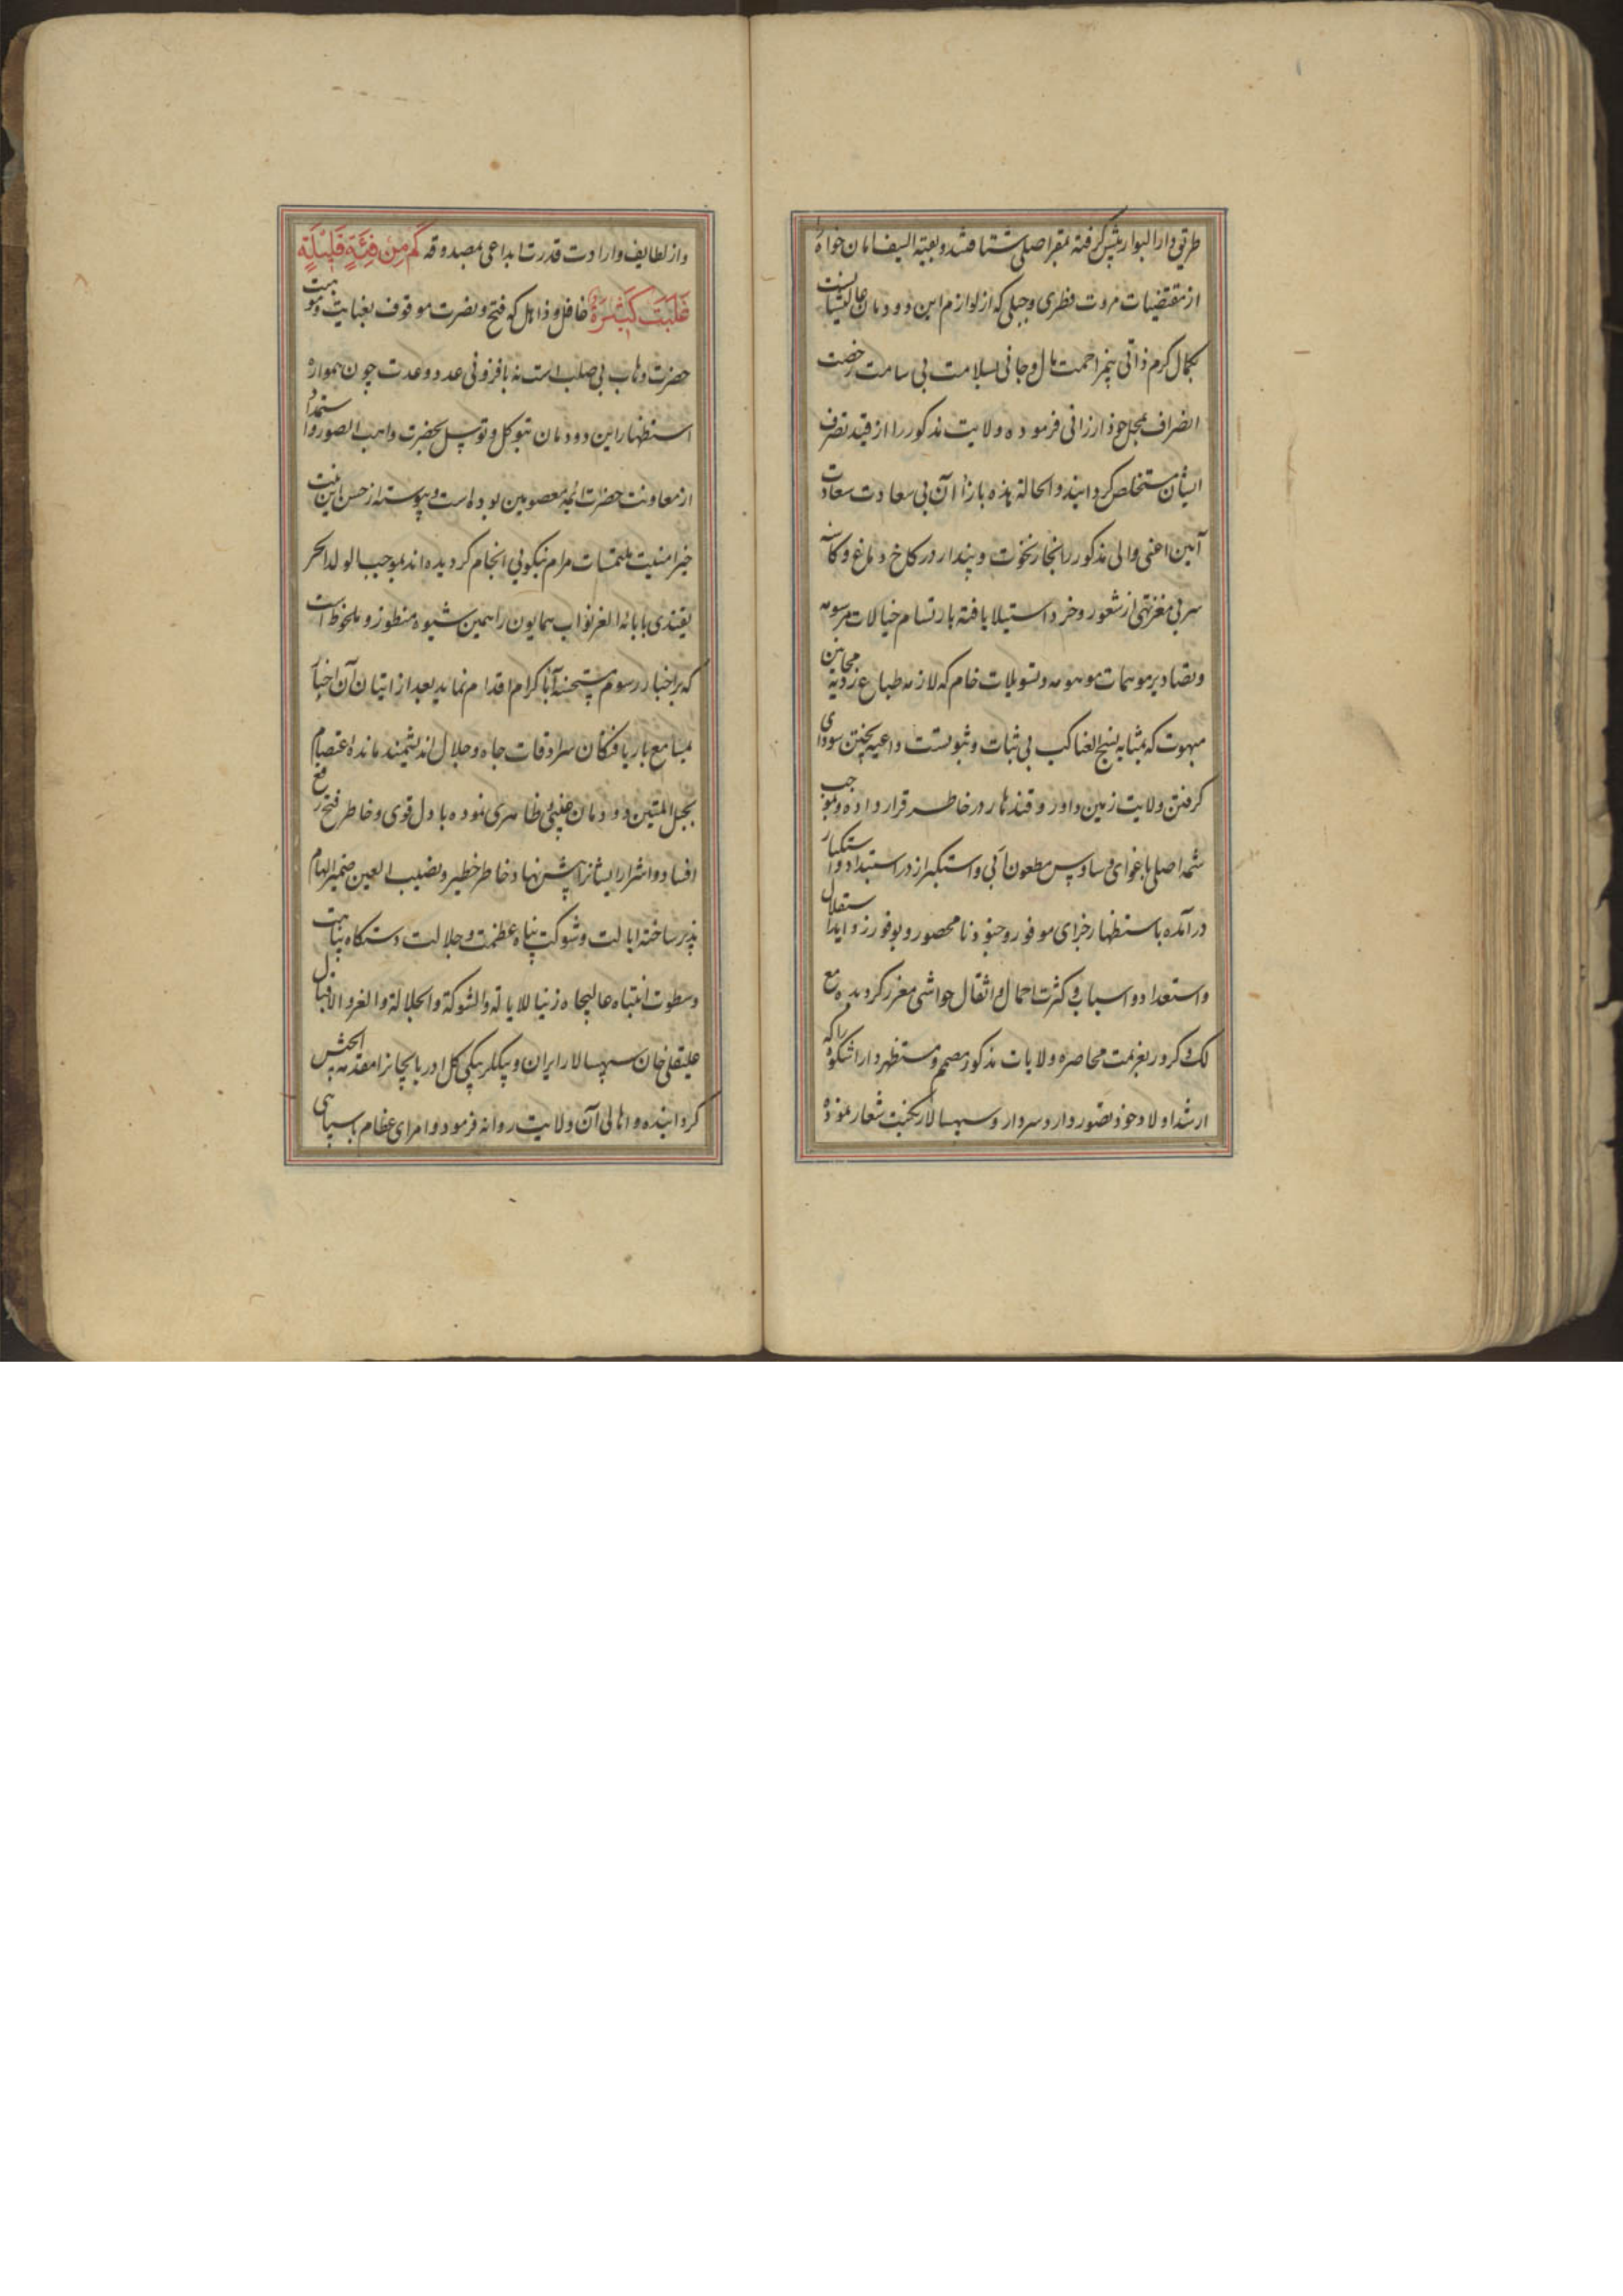 طریق دار البوار پیش گرفته بمقر اصلی شتافتند و بقیة السیف امان خواه
از مقتضیات مروت فطری و جبلی که از لوازم این دودمان عالیشانست
بکمال کرم ذاتی بیمزاحمت مال و جانی بسلامت بی سامت رخصت
انصراف بمحل خود ارزانی فرموده ولایت مذکور را از قید تصرف
ایشان مستخلص گردانیدند و الحالة هذه باز از آن بی سعادت سعادت
آیین اعنی والی مذکور را بخار نخوت و پندار در کاخ دماغ و کاسه
سر بی مغز تهی از شعور و خرد استیلا یافته بارتسام خیالات مرسومه
و تصاویر موهمات موهومه و تسویلات خام که لازمه طباع ردیه مجانین
مبهوت که بمثابه نسج العناکب بی ثبات و ثبوتست داعیه پختن سودای
گرفتن ولایت زمین داور و قندهار در خاطر قرار داده و بموجب
شمه اصلی باغوای وساوس مطعون ابی و استکبر از در استبداد و استکبار
در آمده باستظهار خزای موفور و جنود نامحصور و بوفور زواید استقلال
و استعداد و اسباب و کثرت احمال و اثقال حواشی معزز گردیده مع
لک و کرور بعزیمت محاصره ولایات مذکور مصمم و مستظهر دارا شکوه را که
ارشد اولاد خود تصور دارد سردار و سپهسالار نکبت شعار نموده
و از لطایف واردات قدرت ابداعی بمصدوقه کَم مِن فِئَةٍ قَلیلَةٍ
غَلَبَت کَثیرَةً غافل و ذاهل که فتح و نصرت موقوف بعنایت و موهبت
حضرت وهاب بی ... است نه بافزونی عدد و عدت چون همواره
استظهار این دودمان بتوکل و توسل بحضرت واهب الصور و استمداد
از معاونت حضرات ائمه معصومین بوده است و پیوسته از حسن این نیت
خیر امنیت ملتمسات مرام بنکویی انجام گردیده اند بموجب الولد الحر
یقتدی بابائه الغر نواب همایون را همین شیوه منظور و ملحوظ است
که بر اخبار رسوم مستحسنه آبا کرام اقدام نماید بعد از اتیان آن اخبار
بمسامع باریافتکان سرادقات جاه و جلال اندیشمند نمانده اعتصام
بحبل المتین دودمان غیبی ظاهری نموده با دل قوی و خاطر فتح رفع
افساد و اشرار ایشانرا پیش نهاد خاطر خطیر و نصیب العین ضمیر الهام
پذیر ساخته ایالت و شوکت پناه عظمت و جلالت دستکاه نباهت
و سطوت انتباه عالیجاه زینا للایالة و الشوکة و الجلالة و العز و الاقبال
علیقلی خان سپهسالار ایران و بیکلربیکی کل ادربایجانرا مقدمة الجیش
گردانیده و اهالی آن ولایت روانه فرمود و امرای عظام با سپاهی